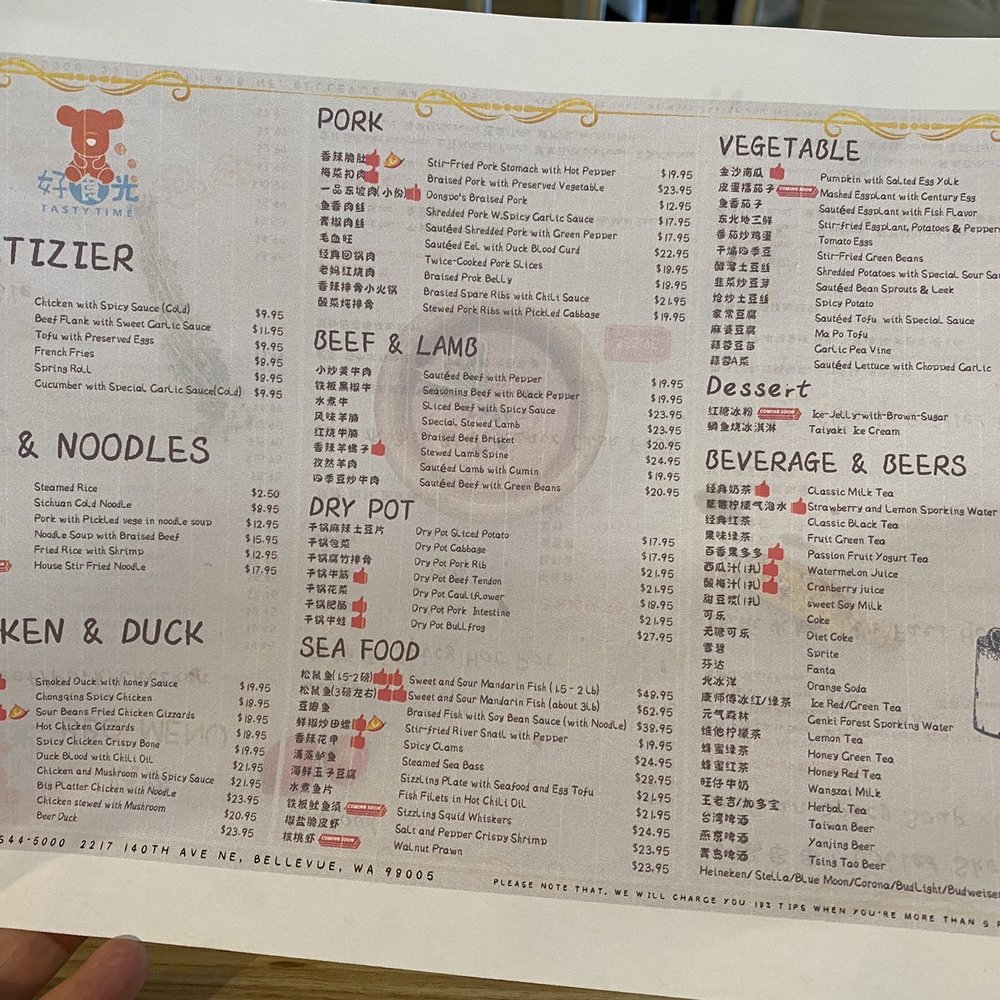 好食光
TASTY TIME
TIZIER
Chicken with Spicy Sauce (Cold) $9.95
Beef Flank with Sweet Garlic Sauce $11.95
Tofu with Preserved Eggs $9.95
French Fries $8.95
Spring Roll $8.95
Cucumber with Special Garlic Sauce(Cold) $9.95
& NOODLES
Steamed Rice $2.50
Sichuan Cold Noodle $8.95
Pork with Pickled vege in noodle soup $12.95
Noodle Soup with Braised Beef $15.95
Fried Rice with Shrimp $12.95
House Stir Fried Noodle $17.95
KEN & DUCK
Smoked Duck with honey Sauce $19.95
Chongqing Spicy Chicken $18.95
Sour Beans Fried Chicken Gizzards $18.95
Hot Chicken Gizzards $18.95
Spicy Chicken Crispy Bone $19.95
Duck Blood with Chili Oil $21.95
Chicken and Mushroom with Spicy Sauce $21.95
Big Platter Chicken with Noodle $23.95
Chicken stewed with Mushroom $20.95
Beer Duck $23.95
PORK
香辣脆肚 Stir-Fried Pork Stomach with Hot Pepper $19.95
梅菜扣肉 Braised Pork with Preserved Vegetable $23.95
一品东坡肉(小份) Dongpo's Braised Pork $12.95
鱼香肉丝 Shredded Pork W.Spicy Garlic Sauce $17.95
青椒肉丝 Sautéed Shredded Pork with Green Pepper $17.95
毛血旺 Sautéed Eel with Duck Blood Curd $22.95
经典回锅肉 Twice-Cooked Pork Slices $18.95
老妈红烧肉 Braised Prok Belly $18.95
香辣排骨小火锅 Brasied Spare Ribs with Chili Sauce $21.95
酸菜炖排骨 Stewed Pork Ribs with Pickled Cabbage $19.95
BEEF & LAMB
小炒黄牛肉 Sautéed Beef with Pepper $19.95
铁板黑椒牛 Seasoning Beef with Black Pepper $19.95
水煮牛 Sliced Beef with Spicy Sauce $23.95
风味羊腩 Special Stewed Lamb $23.95
红烧牛腩 Braised Beef Brisket $20.95
香辣羊蝎子 Stewed Lamb Spine $24.95
孜然羊肉 Sautéed Lamb with Cumin $19.95
四季豆炒牛肉 Sautéed Beef with Green Beans $20.95
DRY POT
干锅麻辣土豆片 Dry Pot Sliced Potato $17.95
干锅包菜 Dry Pot Cabbage $17.95
干锅腐竹排骨 Dry Pot Pork Rib $21.95
干锅牛筋 Dry Pot Beef Tendon $21.95
干锅花菜 Dry Pot Cauliflower $18.95
干锅肥肠 Dry Pot Pork Intestine $21.95
干锅牛蛙 Dry Pot Bullfrog $27.95
SEA FOOD
松鼠鱼(1.5-2磅) Sweet and Sour Mandarin Fish (1.5 - 2 lb) $48.95
松鼠鱼(3磅左右) Sweet and Sour Mandarin Fish (about 3lb) $62.95
豆瓣鱼 Braised Fish with Soy Bean Sauce (with Noodle) $38.95
鲜椒炒田螺 Stir-fried River Snail with Pepper $19.95
香辣花甲 Spicy Clams $24.95
清蒸鲈鱼 Steamed Sea Bass $28.95
海鲜玉子豆腐 Sizzling Plate with Seafood and Egg Tofu $21.95
水煮鱼片 Fish Filets in Hot Chili Oil $21.95
铁板鱿鱼须 COMING SOON Sizzling Squid Whiskers $24.95
椒盐脆皮虾 Salt and Pepper Crispy Shrimp $23.95
核桃虾 COMING SOON Walnut Prawn $23.95
VEGETABLE
金沙南瓜 Pumpkin with Salted Egg Yolk
皮蛋擂茄子 COMING SOON Mashed Eggplant with Century Egg
鱼香茄子 Sautéed Eggplant with Fish Flavor
东北地三鲜 Stir-fried Eggplant, Potatoes & Peppers
番茄炒鸡蛋 Tomato Eggs
干煸四季豆 Stir-Fried Green Beans
酸溜土豆丝 Shredded Potatoes with Special Sour Sau
韭菜炒豆芽 Sautéed Bean Sprouts & Leek
炝炒土豆丝 Spicy Potato
家常豆腐 Sautéed Tofu with Special Sauce
麻婆豆腐 Ma Po Tofu
蒜蓉豆苗 Garlic Pea Vine
蒜蓉A菜 Sautéed Lettuce with Chopped Garlic
Dessert
红糖冰粉 COMING SOON Ice-Jelly-with-Brown-Sugar
鲷鱼烧冰淇淋 Taiyaki Ice Cream
BEVERAGE & BEERS
经典奶茶 Classic Milk Tea
草莓柠檬气泡水 Strawberry and Lemon Sporking Water
经典红茶 Classic Black Tea
果味绿茶 Fruit Green Tea
百香果多多 Passion Fruit Yogurt Tea
西瓜汁(1扎) Watermelon Juice
酸梅汁(1扎) Cranberry juice
甜豆浆(1扎) sweet Soy Milk
可乐 Coke
无糖可乐 Diet Coke
雪碧 Sprite
芬达 Fanta
北冰洋 Orange Soda
康师傅冰红/绿茶 Ice Red/Green Tea
元气森林 Genki Forest Sporking Water
维他柠檬茶 Lemon Tea
蜂蜜绿茶 Honey Green Tea
蜂蜜红茶 Honey Red Tea
旺仔牛奶 Wangzai Milk
王老吉/加多宝 Herbal Tea
台湾啤酒 Taiwan Beer
燕京啤酒 Yanjing Beer
青岛啤酒 Tsing Tao Beer
Heineken/ Stella/Blue Moon/Corona/BudLight/Budweiser
544-5000 2217 140TH AVE NE, BELLEVUE, WA 98005
PLEASE NOTE THAT, WE WILL CHARGE YOU 18% TIPS WHEN YOU'RE MORE THAN 5 P